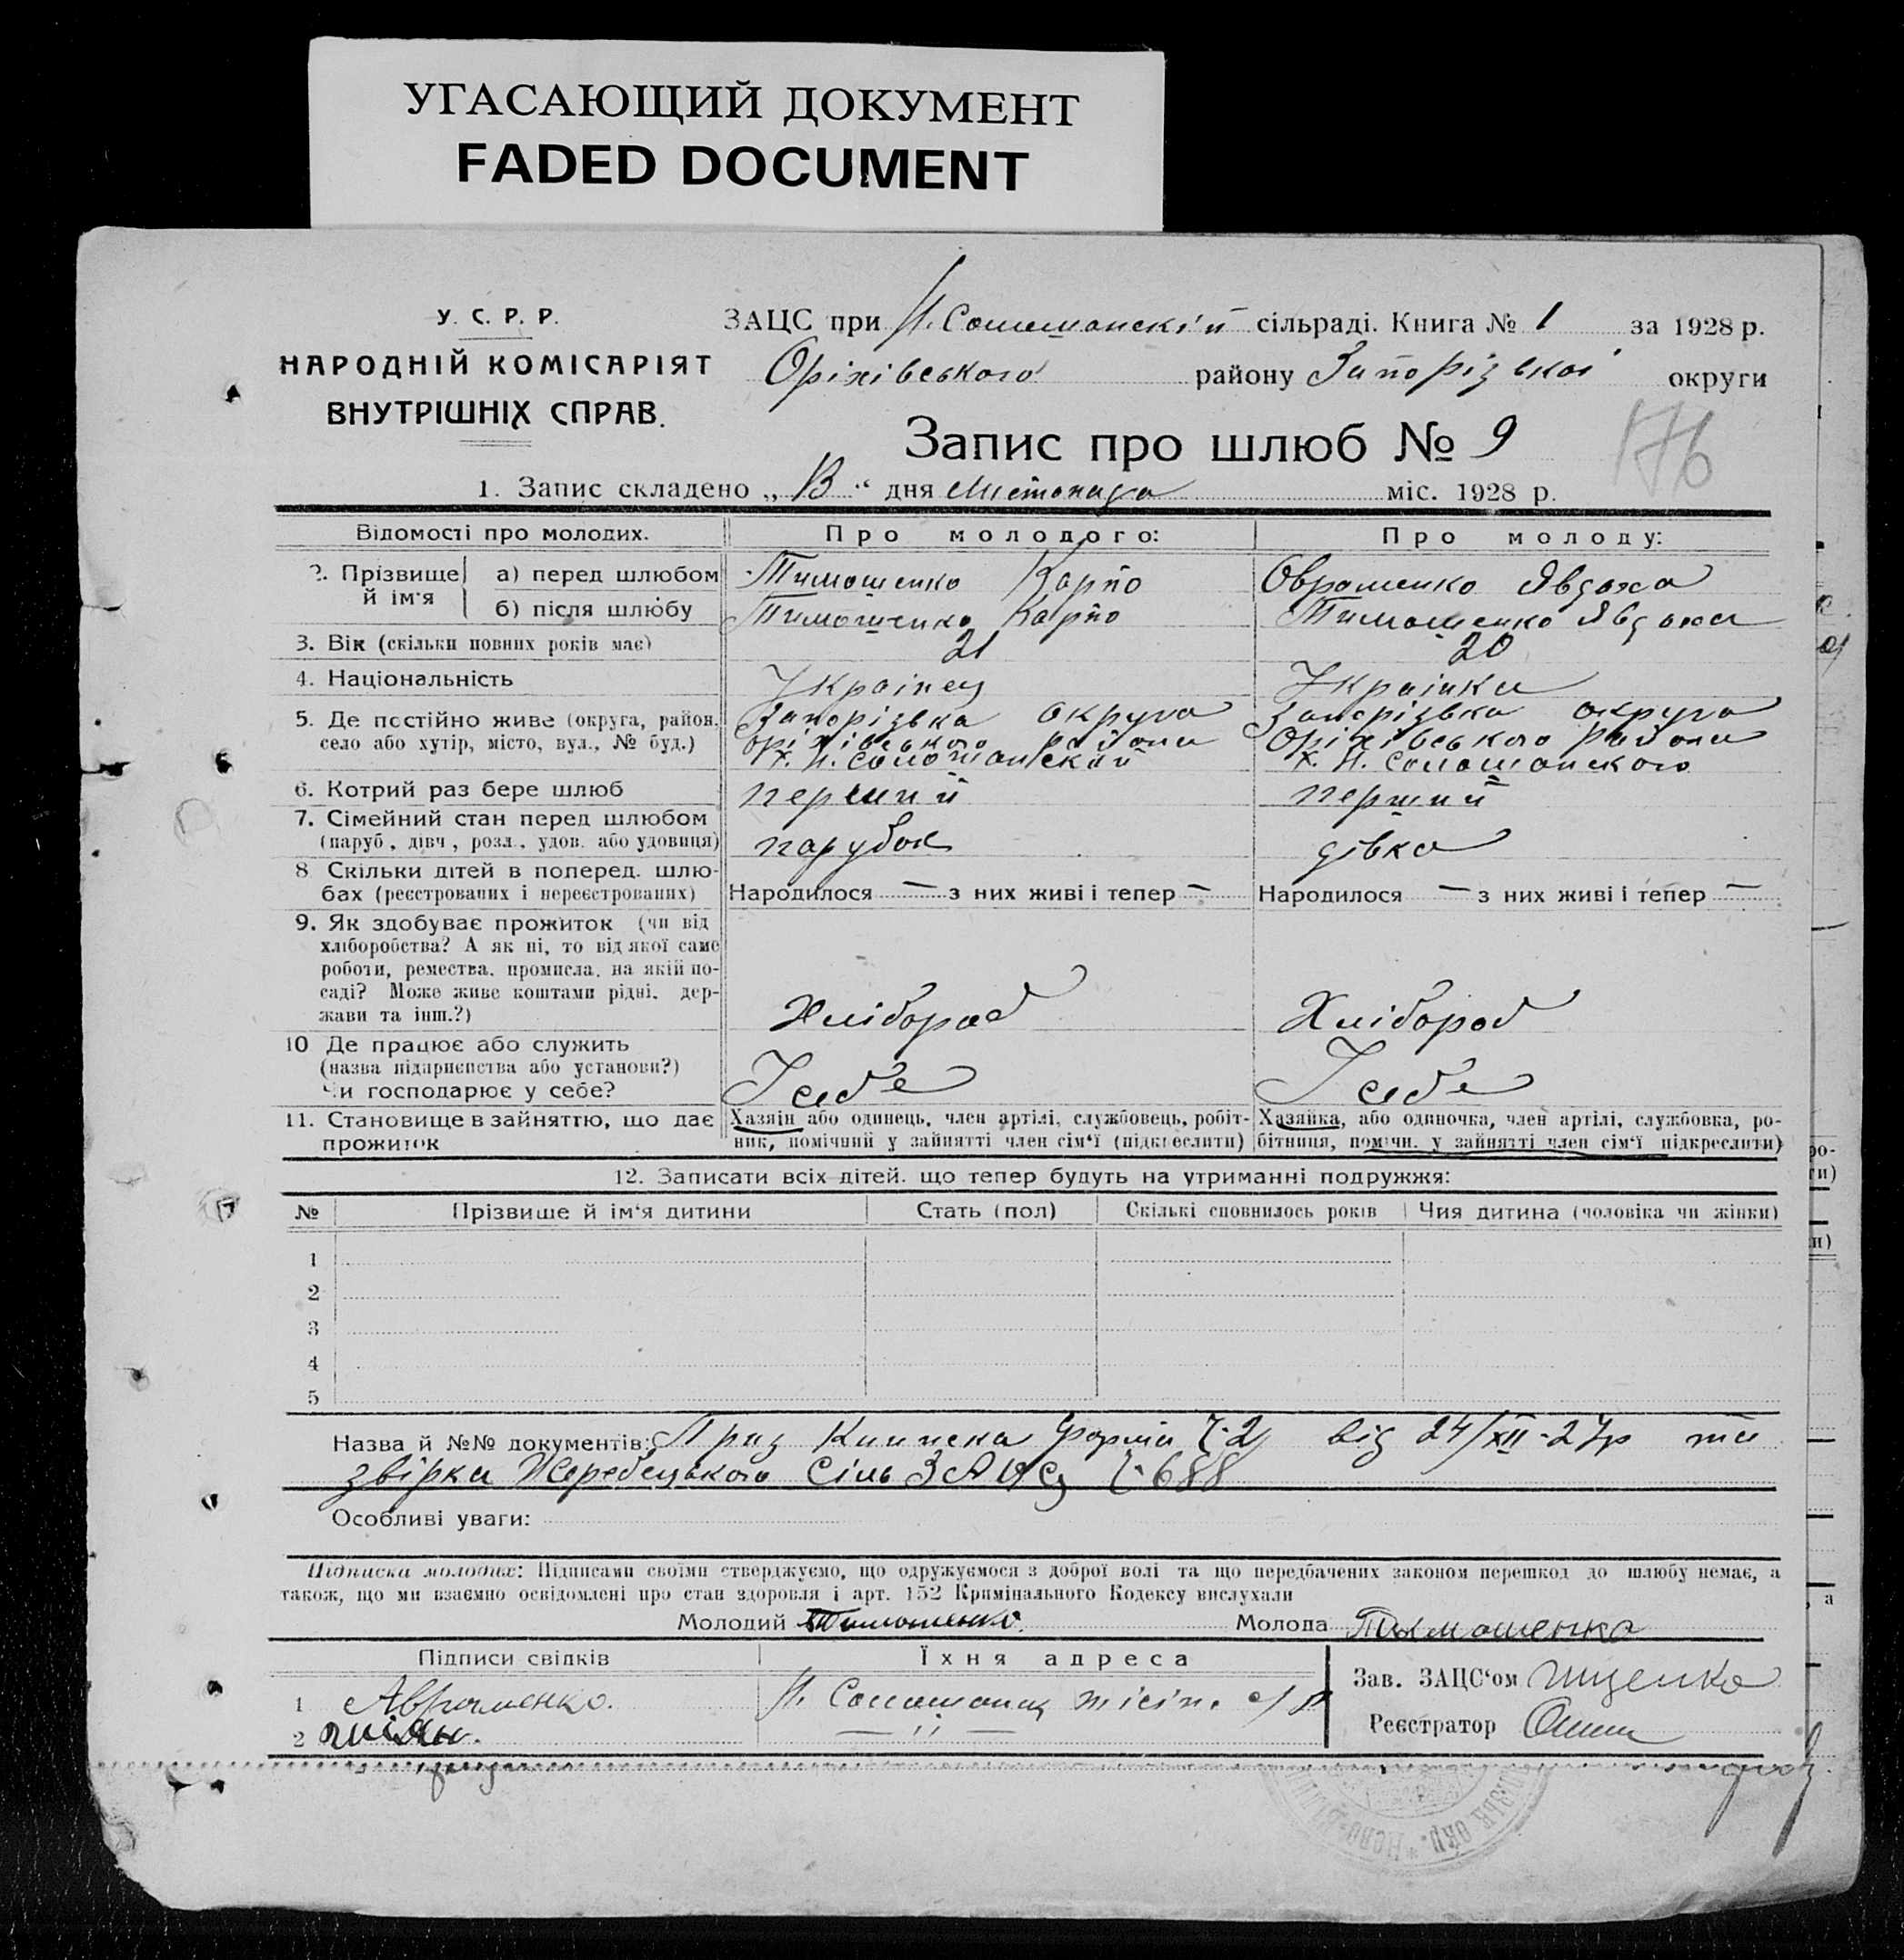 УГАСАЮЩИЙ ДОКУМЕНТ
FADED DOCUMENT
У. С. Р. Р.
НАРОДНІЙ КОМІСАРІЯТ
ВНУТРІШНІХ СПРАВ.
ЗАЦС при сільраді. Книга № 1 за 1928 р.
Оріхівського району Запорізької округи
Запис про шлюб № 9
176
1. Запис складено „ “ дня Листопада міс. 1928 р.
Відомості про молодих. Про молодого: Про молоду:
2. Прізвище й ім'я а) перед шлюбом Тимошенко Карпо Овраменко Явдоха
б) після шлюбу Тимошенко Карпо Тимошенко Явдоха
3. Вік (скільки повних років має) 21 20
4. Національність Українец Українка
5. Де постійно живе (округа, район, Запорізька округа Запорізька округа
село або хутір, місто, вул., № буд.) Оріхівського района Оріхівського района
х. Н. х. Н.
6. Котрий раз бере шлюб перший перший
7. Сімейний стан перед шлюбом
(паруб., дівч., розл., удов. або удовиця) парубок дівка
8 Скільки дітей в поперед. шлю-
бах (реєстрованих і нереєстрованих) Народилося — з них живі і тепер — Народилося — з них живі і тепер —
9. Як здобуває прожиток (чи від
хліборобства? А як ні, то від якої саме
роботи, ремества, промисла, на якій по-
саді? Може живе коштами рідні, дер-
жави та інш.?) Хлібороб Хлібороб
10 Де працює або служить
(назва підприємства або установи?)
Чи господарює у себе? У себе У себе
11. Становище в зайняттю, що дає Хазяїн або одинець, член артілі, службовець, робіт- Хазяйка, або одиночка, член артілі, службовка, ро-
прожиток ник, помічний у зайнятті член сім‘ї (підкреслити) бітниця, помічн. у зайнятті член сім‘ї підкреслити)
12. Записати всіх дітей, що тепер будуть на утриманні подружжя:
№ Прізвище й ім‘я дитини Стать (пол) Скількі сповнилось років Чия дитина (чоловіка чи жінки)
1
2
3
4
5
Назва й №№ документів: форма Ч-2 від 24/XII-27р та
звірка Жеребецького Сіль ЗАЦС Ч. 688
Особливі уваги:
Підписка молодих: Підписами своїми стверджуємо, що одружуємося з доброї волі та що передбачених законом перешкод до шлюбу немає, а
також, що ми взаємно освідомлені про стан здоровля і арт. 152 Кримінального Кодексу вислухали
Молодий Тимошенко. Молода Тимошенко
Підписи свідків Їхня адреса
1 Авраменко.
2 — ,, —
Зав. ЗАЦС‘ом
Реєстратор